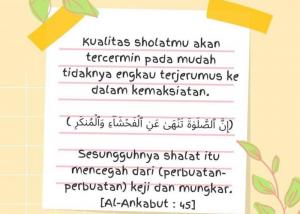 Kualitas sholatmu akan
tercermin pada mudah
tidaknya engkau terjerumus ke
dalam kemaksiatan.
(إِنَّ الصَّلَوٰةَ تَنْهَىٰ عَنِ الْفَحْشَآءِ وَالْمُنكَرِ )
Sesungguhnya shalat itu
mencegah dari (perbuatan-
perbuatan) keji dan mungkar.
[Al-Ankabut : 45]